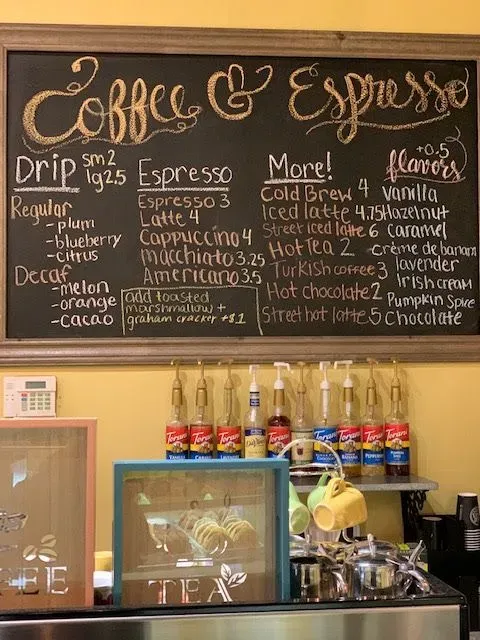 Coffee & Espresso
Drip sm 2
lg 2.5
Regular
- plum
- blueberry
- citrus
Decaf
- melon
- orange
- cacao
Espresso
Espresso 3
Latte 4
Cappuccino 4
Macchiato 3.25
Americano 3.5
add toasted
marshmallow +
graham cracker +$.1
More!
Cold Brew 4
Iced latte 4.75
Street iced latte 6
Hot Tea 2
Turkish coffee 3
Hot chocolate 2
Street hot latte 5
+0.5
flavors
Vanilla
Hazelnut
caramel
crème de banana
lavender
Irish cream
Pumpkin Spice
Chocolate
Torani
VANILLA
Torani
Torani
LAVENDER
Torani
Torani
Torani
Torani
Torani
FEE
TEA